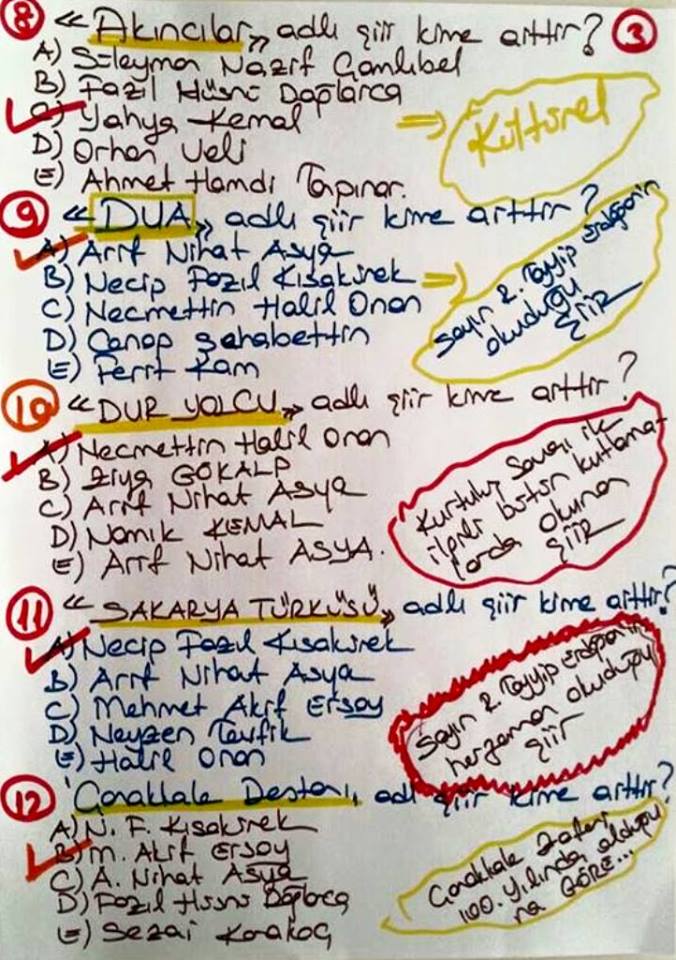 8 « Akıncılar» adlı şiir kime aittir? 3
A) Süleyman Nazif Çamlıbel
B) Fazıl Hüsnü Dağlarca
C) Yahya Kemal
D) Orhan Veli
E) Ahmet Hamdi Tapınar.
=> Kültürel
9 « DUA » adlı şiir kime aittir?
A) Arif Nihat Asya
B) Necip Fazıl Kısakürek =>
C) Necmettin Halil Onan
D) Canap Şahabettin
E) Ferit Kam
Sayın R. Tayyip Erdoğan'ın
okuduğu
şiir
10 « DUR YOLCU » adlı şiir kime aittir?
A) Necmettin Halil Onan
B) Ziya GÖKALP
C) Arif Nihat Asya
D) Namık KEMAL
E) Arif Nihat ASYA.
Kurtuluş Savaşı ile
ilgili bütün kutlama-
larda okunan
şiir
11 « SAKARYA TÜRKÜSÜ» adlı şiir kime aittir?
A) Necip Fazıl Kısakürek
B) Arif Nihat Asya
C) Mehmet Akif Ersoy
D) Neyzen Tevfik
E) Halil Onan
Sayın R. Tayyip Erdoğan'ın
herzaman okuduğu
şiir
12 'Çanakkale Destanı, adlı şiir kime aittir?
A) N. F. Kısakürek
B) M. Akif Ersoy
C) A. Nihat Asya
D) Fazıl Hüsnü Dağlarca
E) Sezai Karakoç
Çanakkale Zaferi
100. yılında olduğu
na GÖRE...